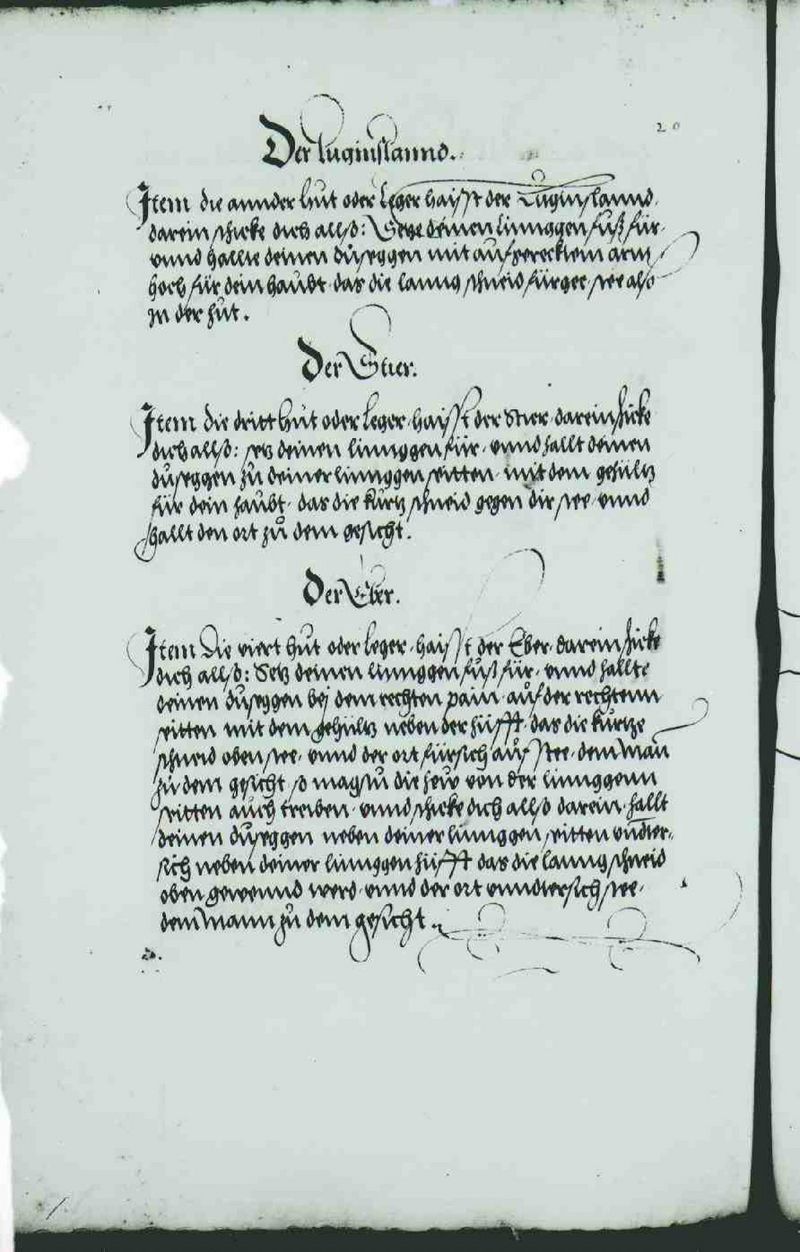 20
Der luginslannd.
Item die annder hut oder leger haisst der Luginslannd,
darein schicke dich allso: Setze deinen linnggen fuß für,
vnnd hallte deinen duseggen mit aufgerecktem arm
hoch für dein haubt, das die lanng schneid fürgee, stee also
in der hut.
Der Stier.
Item die dritt hut oder leger, haisst der Stier, darein schicke
dich allso: setz deinen linnggen für, vnnd hallt deinen
duseggen zu deiner linnggen seitten, mit dem gehültz
für dein haubt, das die kurtz schneid gegen dir stee, vnnd
hallt den ort zu dem gesicht.
Der Eber.
Item Die viert hut oder leger, haisst der Eber, darein schicke
dich allso: Setz deinen linnggen fuß für, vnnd hallte
deinen duseggen bej dem rechten pain, auf der rechtenn
seitten mit dem gehultz neben der hüfft, das die kurtze
schneid oben stee, vnnd der ort fürsich auf stee, dem man
zu dem gesicht, so magstu die hew von der linnggenn
seitten auch treiben, vnnd schicke dich allso darein, hallt
deinen duseggen neben deiner linnggen seitten vnnder,
sich neben deiner linnggen hüfft das die lanng schneid
oben gewennd werd, vnnd der ort vnndersich stee,
dem mann zu dem gesicht.